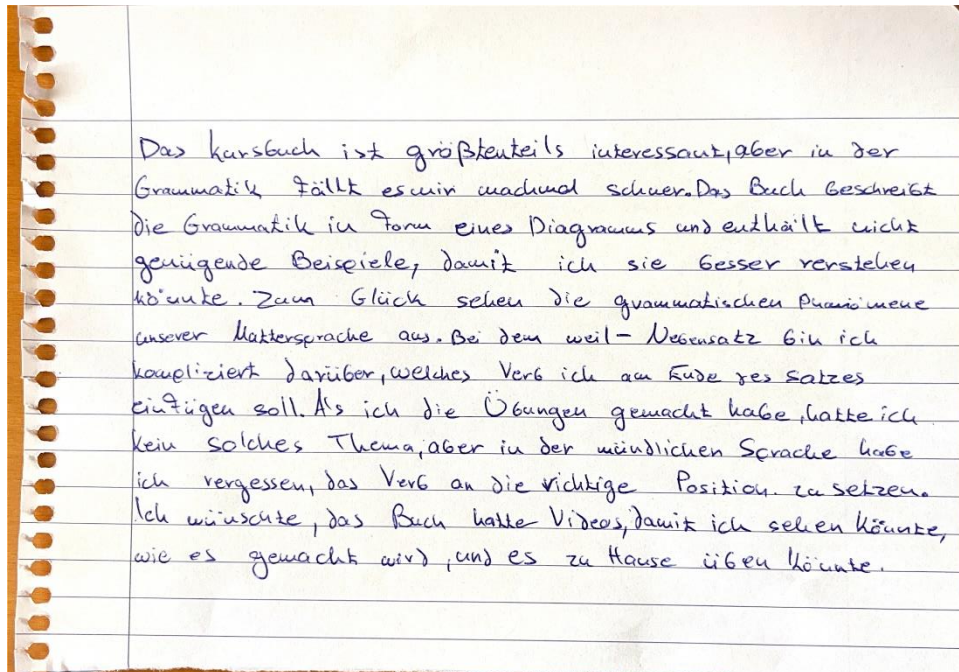 Das Kursbuch ist größtenteils interessant, aber in der
Grammatik fällt es mir machmal schwer. Das Buch beschreibt
die Grammatik in Form eines Diagramms und enthält nicht
genügende Beispiele, damit ich sie besser verstehen
könnte. Zum Glück sehen die grammatischen
unserer Muttersprache aus. Bei dem weil - Nebensatz bin ich
kompliziert darüber, welches Verb ich am Ende des Satzes
einfügen soll. Als ich die Übungen gemacht habe, hatte ich
kein solches Thema, aber in der mündlichen Sprache habe
ich vergessen, das Verb an die richtige Position. zu setzen.
Ich wünschte, das Buch hatte Videos, damit ich sehen könnte,
wie es gemacht wird, und es zu Hause üben könnte.